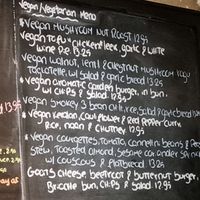 Vegan/Vegetarian Menu
Vegan Mushroom Nut Roast 12.95
Vegan Tofu, Chicken Leek, Garlic & White
Wine Pie 13.25
Vegan Walnut, Lentil & Chestnut Mushroom Ragu
Tagliatelle w/ Salad & Garlic Bread 13.25
Vegan Aromatic Garden Burger, in Bun,
w/ Chips & Salad 12.95
Vegan Smokey 3 Bean Chilli, Rice, Salad & Garlic Bread
Vegan Keralan, Cauliflower & Red Pepper Curry
Rice, Naan & Chutney 12.95
Vegan Courgettes, Tomato, Cannellini Beans & Pea
Stew, Toasted Almond, Sesame
w/ Couscous & Flatbread 13.25
Goats Cheese Beetroot & Butternut Burger,
Brioche Bun, Chips & Salad 12.95
13.95